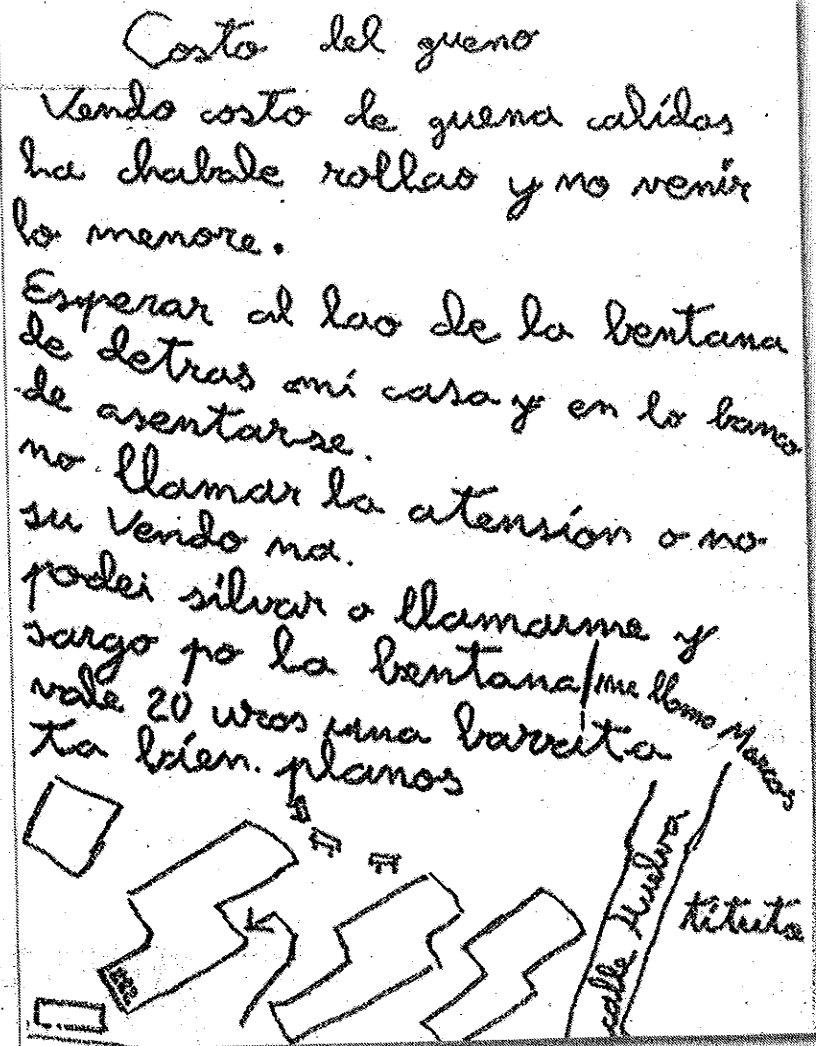 Costo del gueno
Vendo costo de guena calidas
ha chabale rollao y no venir
lo menore.
Esperar al lao de la bentana
de detras mi casa y en lo banco
de asentarse.
no llamar la atensíon o no
su Vendo na.
podei silvar o llamarme y
sargo po la bentana/me llamo Marcos
vale 20 uros una barrita
ta bien. planos
calle Huelva
tituto